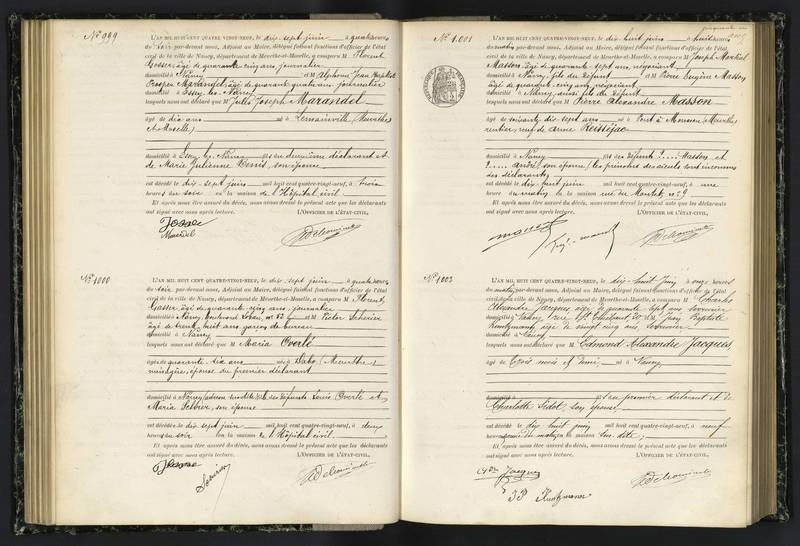 N° 999
L'AN MIL HUIT CENT QUATRE-VINGT-NEUF, le dix-sept juin à quatre heures
du soir par-devant nous, Adjoint au Maire, délégué faisant fonctions d'officier de l'état
civil de la ville de Nancy, département de Meurthe-et-Moselle, a comparu M Florent
âgé de quarante cinq ans, journalier
domicilié à Nancy et M Alphonse Jean Baptiste
Prosper Marandel âgé de quarante quatre ans, journalier
domicilié à Essey-lès-Nancy
lesquels nous ont déclaré que M Jules Joseph Marandel
âgé de dix ans né à Lemainville (Meurthe
et Moselle)
domicilié à Essey-lès-Nancy fils du deuxième déclarant et
de Marie Julienne son épouse
est décédé le dix-sept juin mil huit cent quatre-vingt-neuf, à trois
heures du soir en la maison de l'Hôpital civil.
Et après nous être assuré du décès, nous avons dressé le présent acte que les déclarants
ont signé avec nous après lecture. L'OFFICIER DE L'ÉTAT-CIVIL,
N° 1000
L'AN MIL HUIT CENT QUATRE-VINGT-NEUF, le dix-sept juin à quatre heures
du soir par-devant nous, Adjoint au Maire, délégué faisant fonctions d'officier de l'état
civil de la ville de Nancy, département de Meurthe-et-Moselle, a comparu M Florent
âgé de quarante cinq ans, journalier
domicilié à Nancy, boulevard et M Victor
âgé de trente huit ans, garçon de bureau
domicilié à Nancy
lesquels nous ont déclaré que M Maria Overlé
âgée de quarante-dix ans née à Dabo (Meurthe)
ménagère, épouse du premier déclarant
domiciliée à Nancy fille des défunts Louis Overlé et
Maria son épouse
est décédée le dix-sept juin mil huit cent quatre-vingt-neuf, à deux
heures du soir en la maison de l'Hôpital civil.
Et après nous être assuré du décès, nous avons dressé le présent acte que les déclarants
ont signé avec nous après lecture. L'OFFICIER DE L'ÉTAT-CIVIL,
N° 1.001
L'AN MIL HUIT CENT QUATRE-VINGT-NEUF, le dix-huit juin à huit heures
du matin par-devant nous, Adjoint au Maire, délégué faisant fonctions d'officier de l'état
civil de la ville de Nancy, département de Meurthe-et-Moselle, a comparu M Joseph Martial
Masson, âgé de quarante sept ans, négociant
domicilié à Nancy, fils du défunt et M Pierre Eugène Masson
âgé de quarante cinq ans, négociant
domicilié à Nancy, aussi fils du défunt
lesquels nous ont déclaré que M Pierre Alexandre Masson
âgé de soixante dix-sept ans né à Pont à Mousson (Meurthe)
rentier, veuf de Anne
domicilié à Nancy fils des défunts ?.... Masson et
?..... André, son épouse (les prénoms des aïeuls sont inconnus
des déclarants)
est décédé le dix huit juin mil huit cent quatre-vingt-neuf, à une
heure du matin, en la maison rue du n° 9
Et après nous être assuré du décès, nous avons dressé le présent acte que les déclarants
ont signé avec nous après lecture. L'OFFICIER DE L'ÉTAT-CIVIL,
N° 1002
L'AN MIL HUIT CENT QUATRE-VINGT-NEUF, le dix-huit juin à onze heures
du matin, par-devant nous, Adjoint au Maire, délégué faisant fonctions d'officier de l'état
civil de la ville de Nancy, département de Meurthe-et-Moselle, a comparu M Charles
Alexandre Jacques âgé de quarante sept ans serrurier
domicilié à Nancy et M Jean Baptiste
Kuntzmann âgé de vingt cinq ans, serrurier
domicilié à Nancy
lesquels nous ont déclaré que M Edmond Alexandre Jacques
âgé de trois mois et demi né à Nancy,
fils du premier déclarant et de
Charlotte Pidot, son épouse
est décédé le dix huit juin mil huit cent quatre-vingt-neuf, à neuf
heures du matin en la maison
Et après nous être assuré du décès, nous avons dressé le présent acte que les déclarants
ont signé avec nous après lecture. L'OFFICIER DE L'ÉTAT-CIVIL,